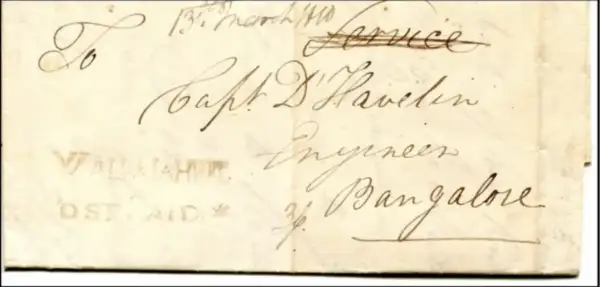 13th March 1810
Service
To
Capt. D'Havelin
Engineer
Bangalore
WALLAJAH
OST PAID *